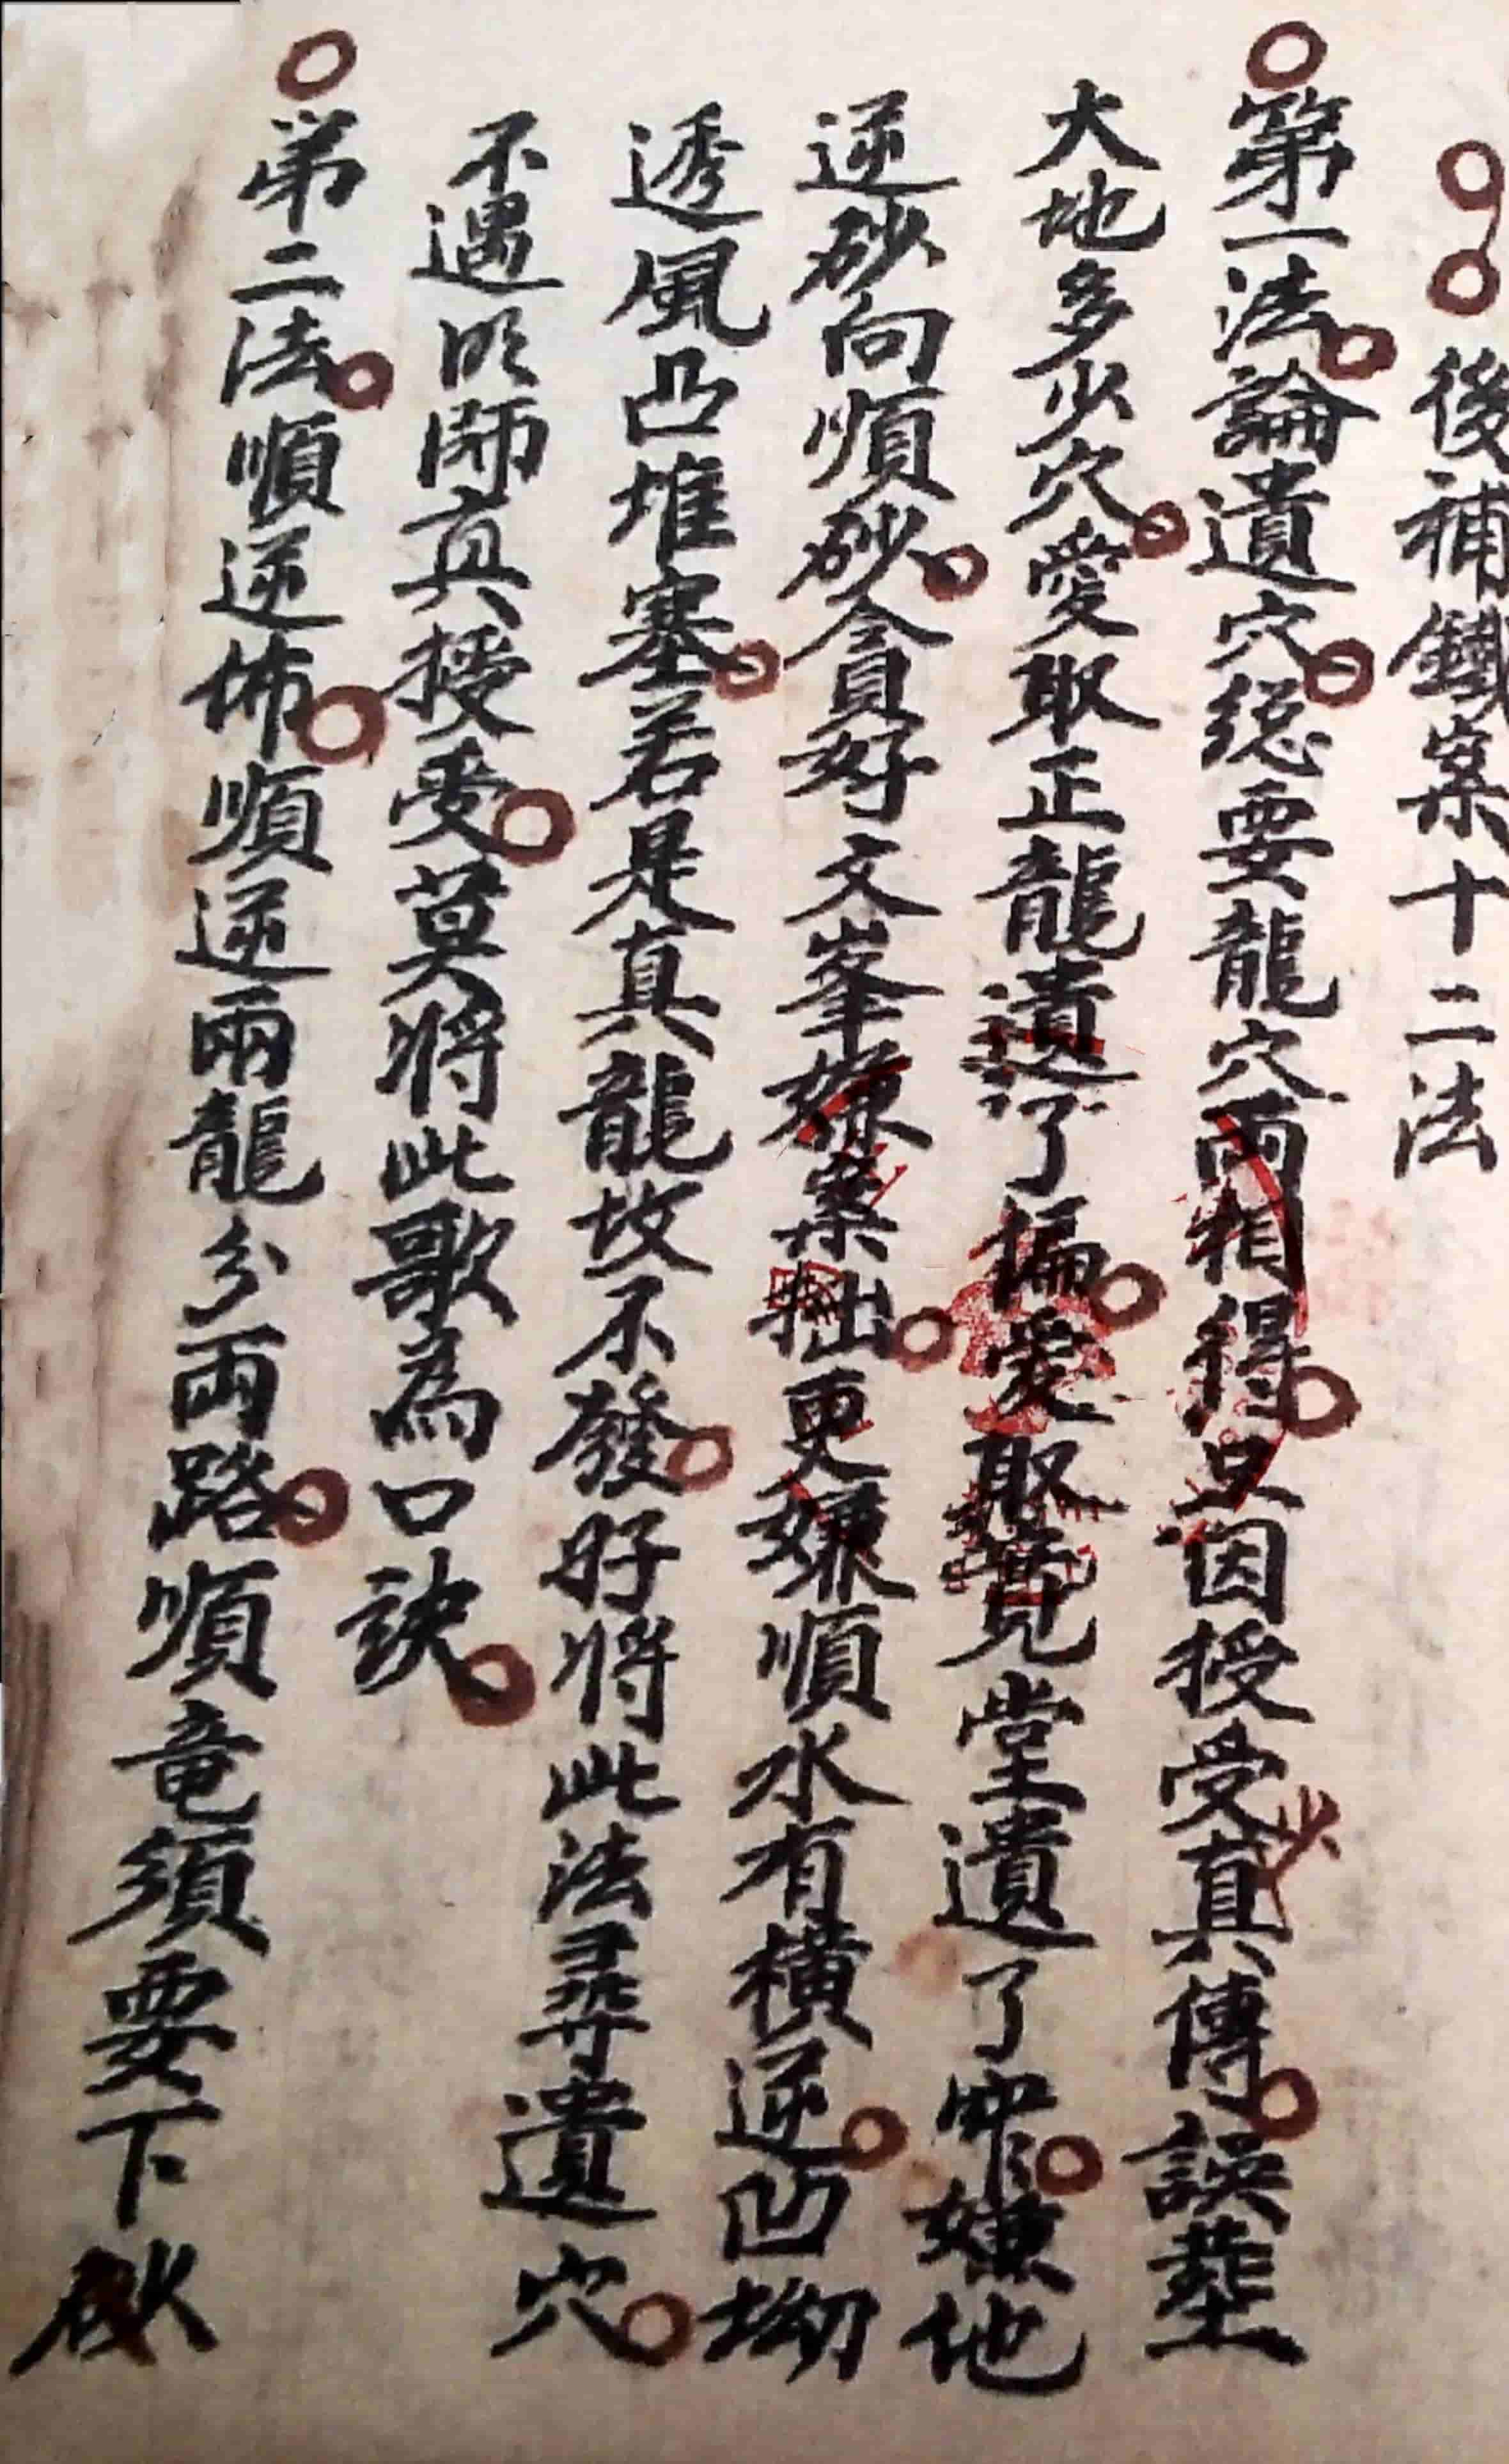 後補鐵案十二法
第一法論遺穴総要龍穴兩相得只因授受少真傳誤塟
大地多少穴愛取正龍遺了偏愛取寬堂遺了窄嫌他
逆砂向順砂貪好文峯嫌案拙更嫌順水有橫逆凹坳
透風凸堆塞若是真龍故不發好將此法尋遺穴
不遇明師真授受莫將此歌為口訣
弟二法順逆怖順逆兩龍分兩路順竜須要下砂